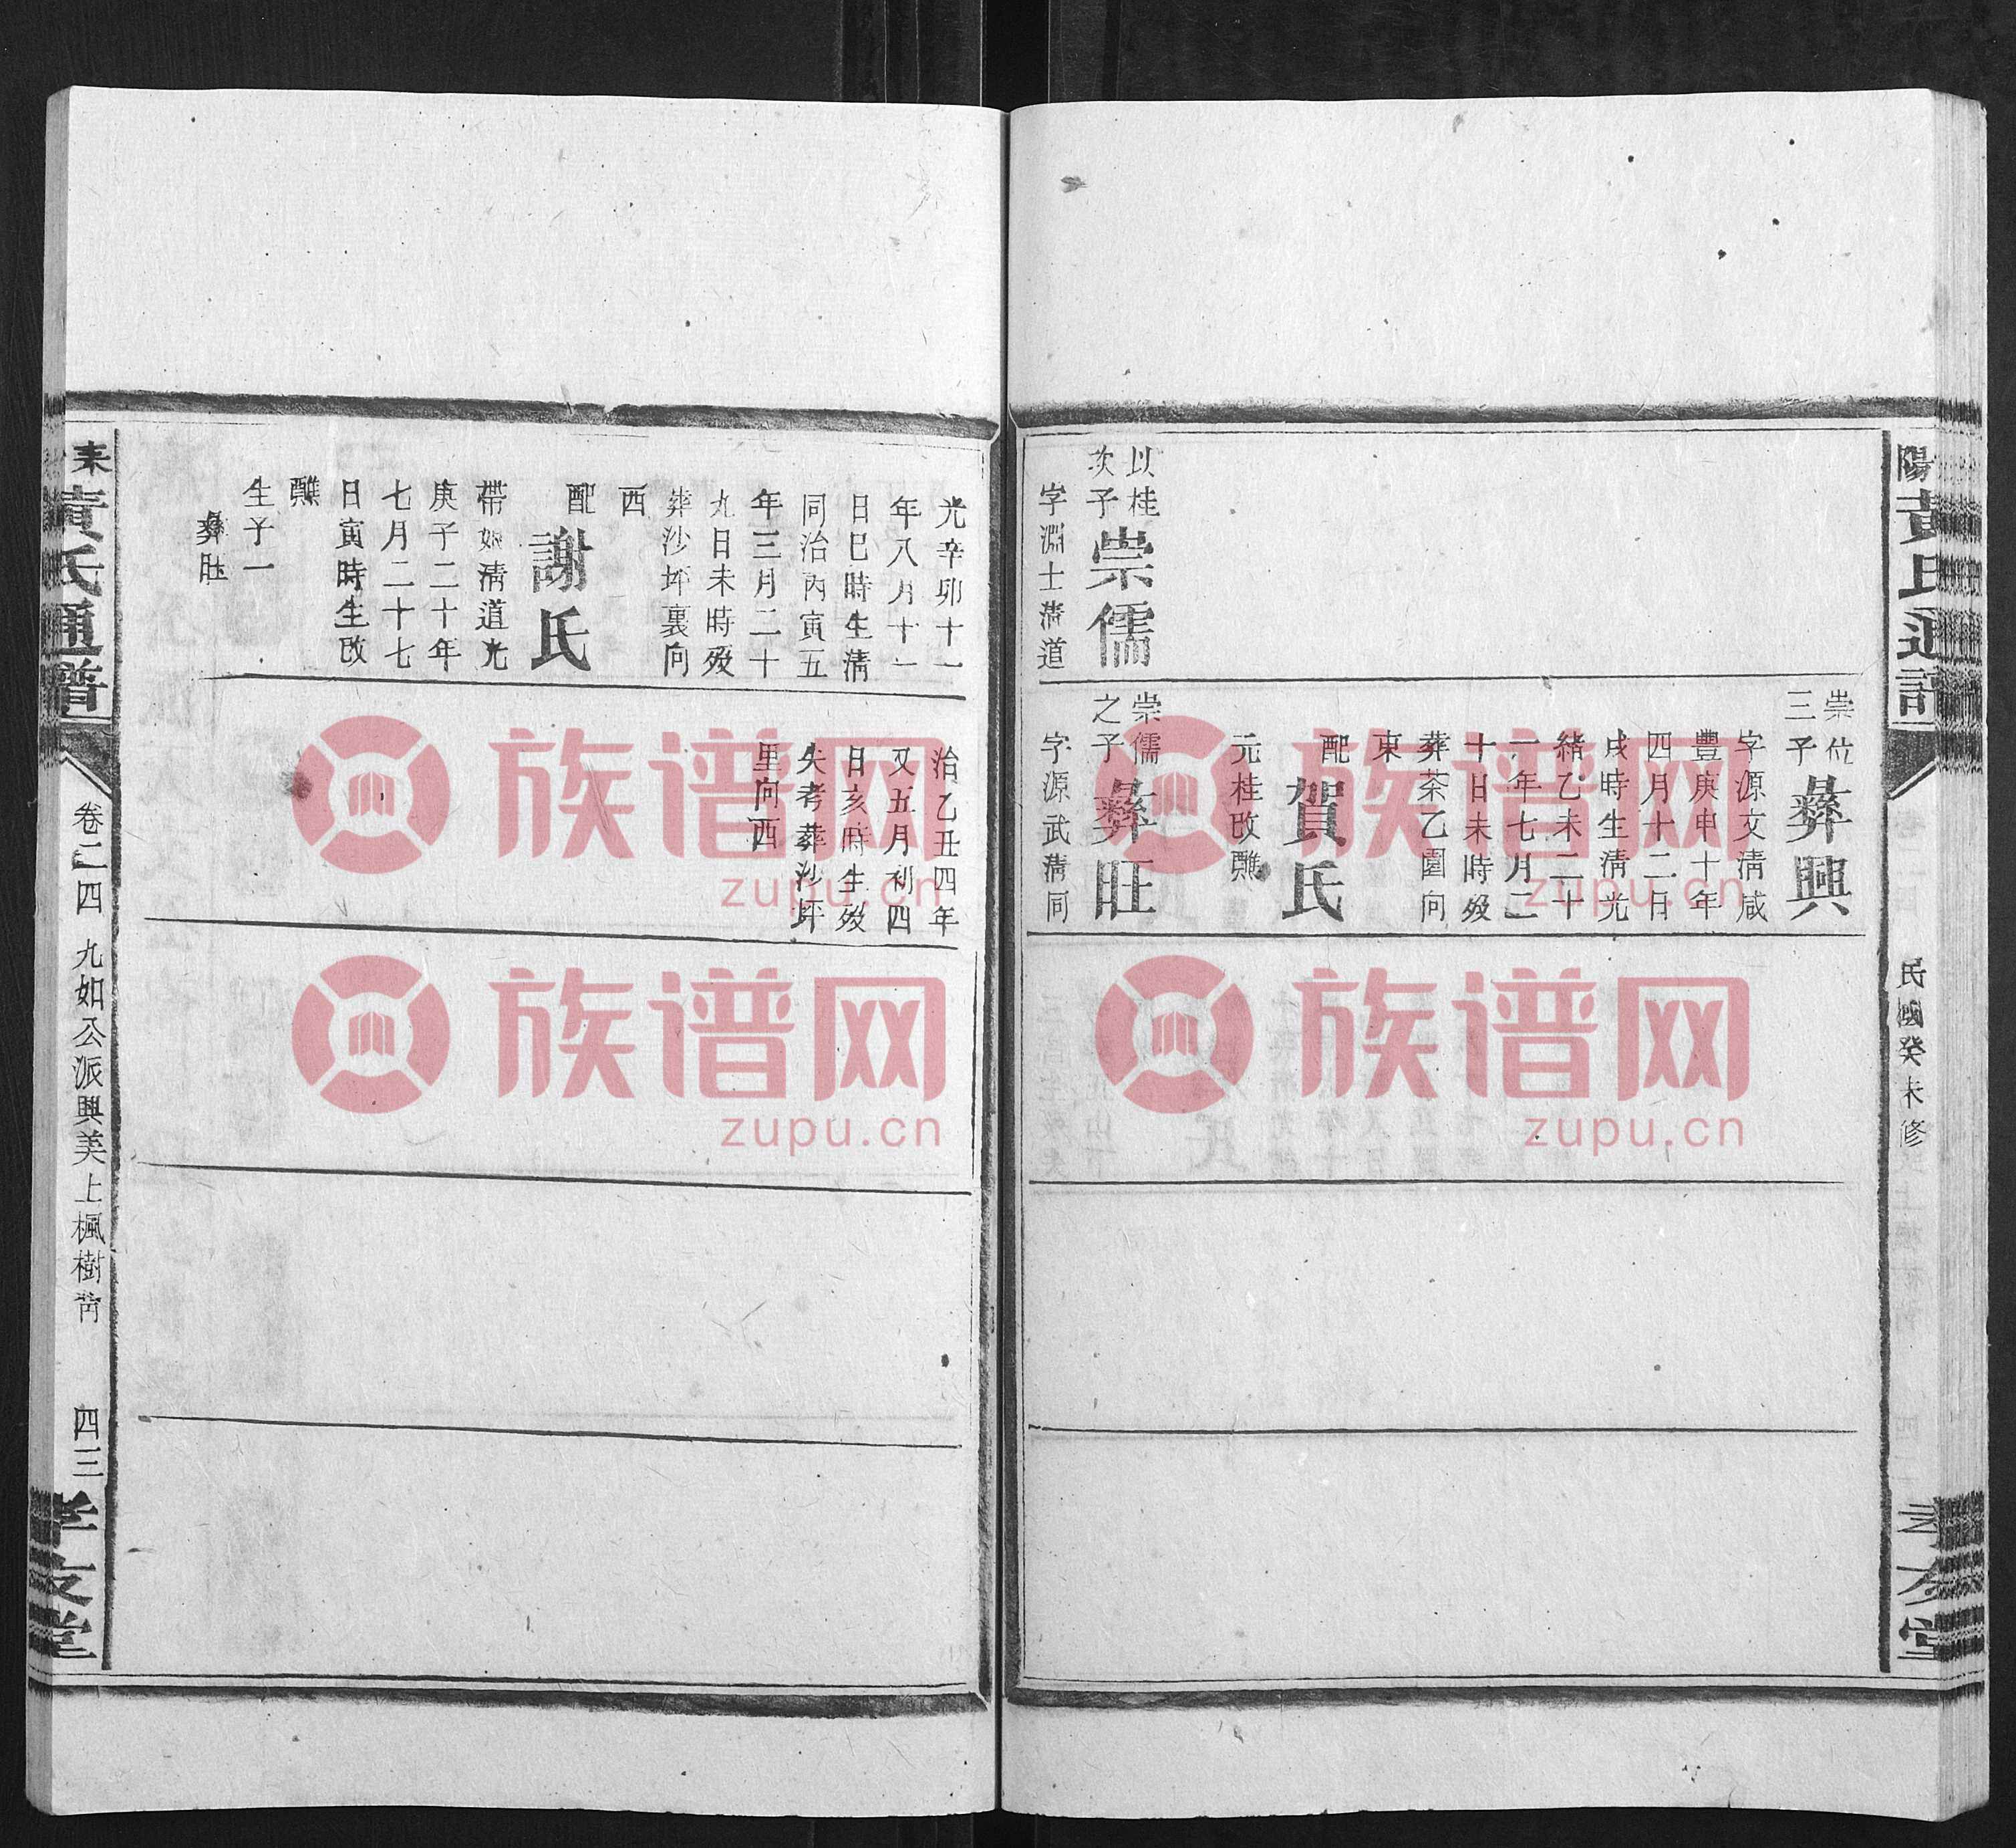 陽黃氏通譜
民國癸未修
孝友堂
以桂
次子
崇儒
字淵士清道
崇位
三子
彝興
字源文清咸
豐庚申十年
四月十二日
戌時生清光
緒乙未二十
一年七月二
十日未時歿
葬茶乙園向
東
配
賀氏
元桂改醮
崇儒
之子
彝旺
字源武清同
光辛卯十一
年八月十一
日巳時生清
同治丙寅五
年三月二十
九日未時歿
葬沙坪裏向
西
配
謝氏
帶娘清道光
庚子二十年
七月二十七
日寅時生改
醮
生子一
彝旺
治乙丑四年
又五月初四
日亥時生歿
失考葬沙坪
里向西
耒
黃氏通譜
卷二四
九如公派興美上楓樹
四三
孝友堂
族谱网
zupu.cn
族谱网
zupu.cn
族谱网
zupu.cn
族谱网
zupu.cn